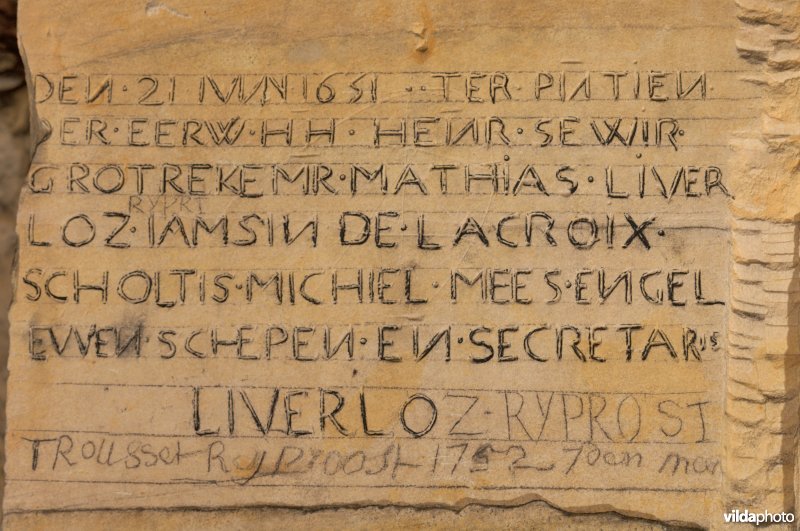 DEN · 21 IVNI 1651 ·· TER · PINTIEN
DER · EERW · HH · HEINR · SEWIR ·
GROTREKE MR · MATHIAS · LIVER
RYPRI
LOZ · IAMSIN DE · LACROIX ·
SCHOLTIS · MICHIEL · MEES · ENGEL
EVVEN · SCHEPEN · EN · SECRETAR · IS
LIVERLOZ · RYPROST
TROUSSET RYPROOST 1752
vildaphoto